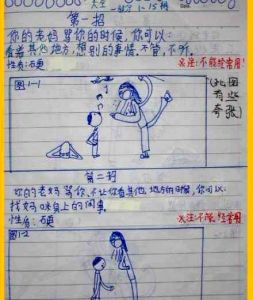 第一招
你的老妈骂你的时候,你可以:
看着其他地方,想别的事情,不管,不听。
性质:石更
关注:不能经常用!
图1-1
(此图
有些
夸张)
第二招
如的老妈骂你,不让你看其他地方的时候,你可以:
找妈咪身上的闲事
性质:石更
关注:不能经常用
图1-2